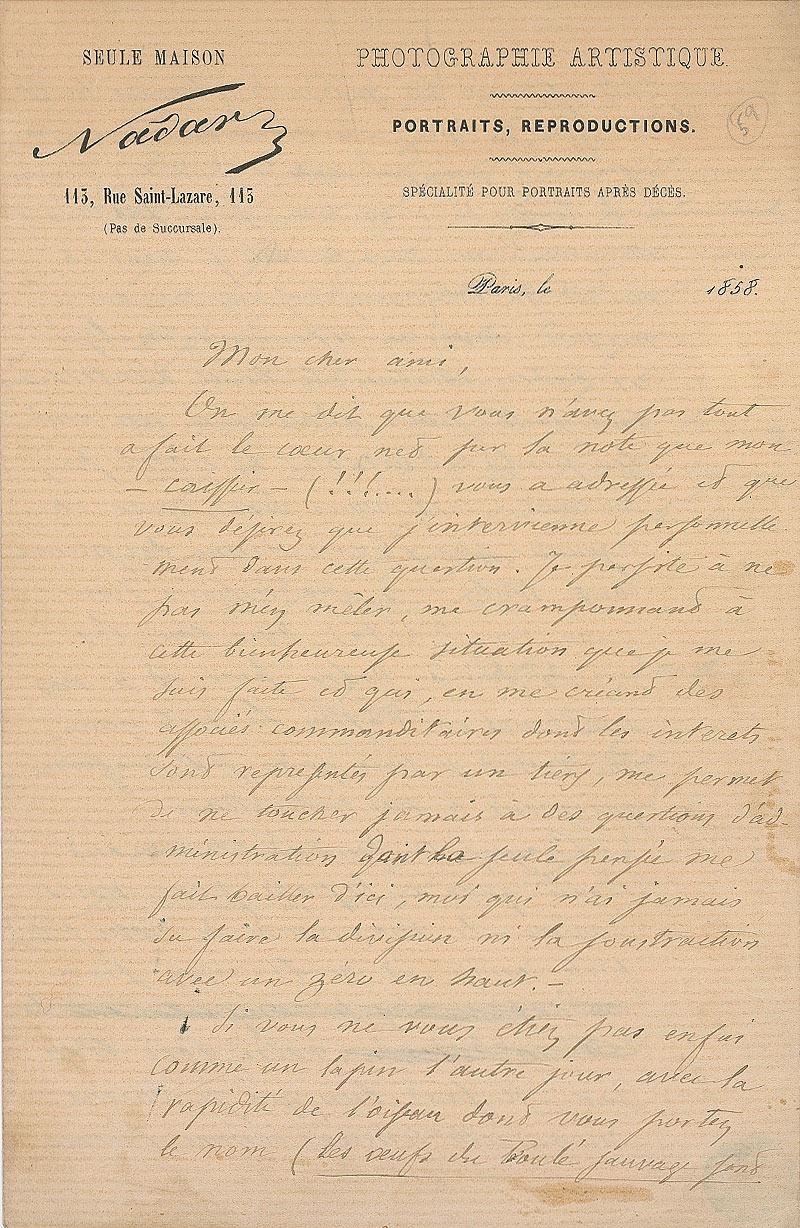 SEULE MAISON
Nadar
113, Rue Saint-Lazare, 113
(Pas de Succursale).
PHOTOGRAPHIE ARTISTIQUE.
PORTRAITS, REPRODUCTIONS.
SPÉCIALITÉ POUR PORTRAITS APRÈS DÉCÈS.
59
Paris, le 1858.
Mon cher ami,
On me dit que vous n'avez pas tout
a fait le cœur net sur la note que mon
– caissier – (!!!....) vous a adressée et que
vous désirez que j'intervienne personnelle
ment dans cette question. Je persiste à ne
pas m'en mêler, me cramponnant à
cette bienheureuse situation que je me
suis faite et qui, en me créant des
associés commanditaires dont les interets
sont représentés par un tiers, me permet
de ne toucher jamais à des questions d'ad-
ministration dont la seule pensée me
fait bailler d'ici, moi qui n'ai jamais
su faire la division ni la soustraction
avec un zéro en haut. –
Si vous ne vous étiez pas enfui
comme un lapin l'autre jour, avec la
rapidité de l'oiseau dont vous portez
le nom (les œufs du Poulé sauvage sont